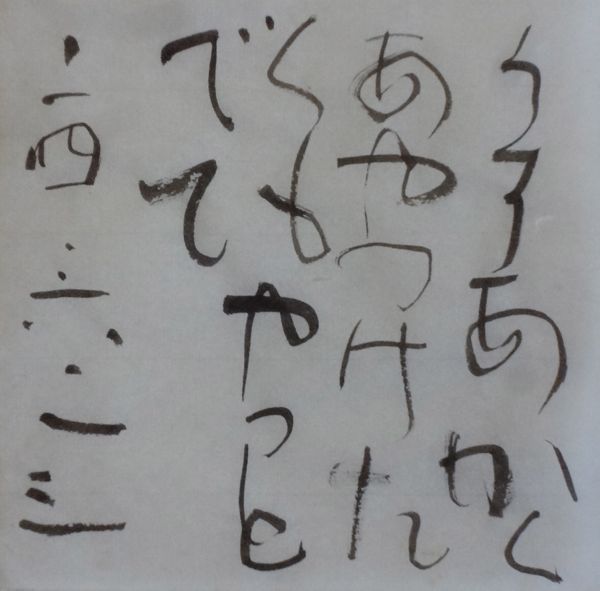 うろあかく
あやつけた
くもやっと
でて
二四・六・一三